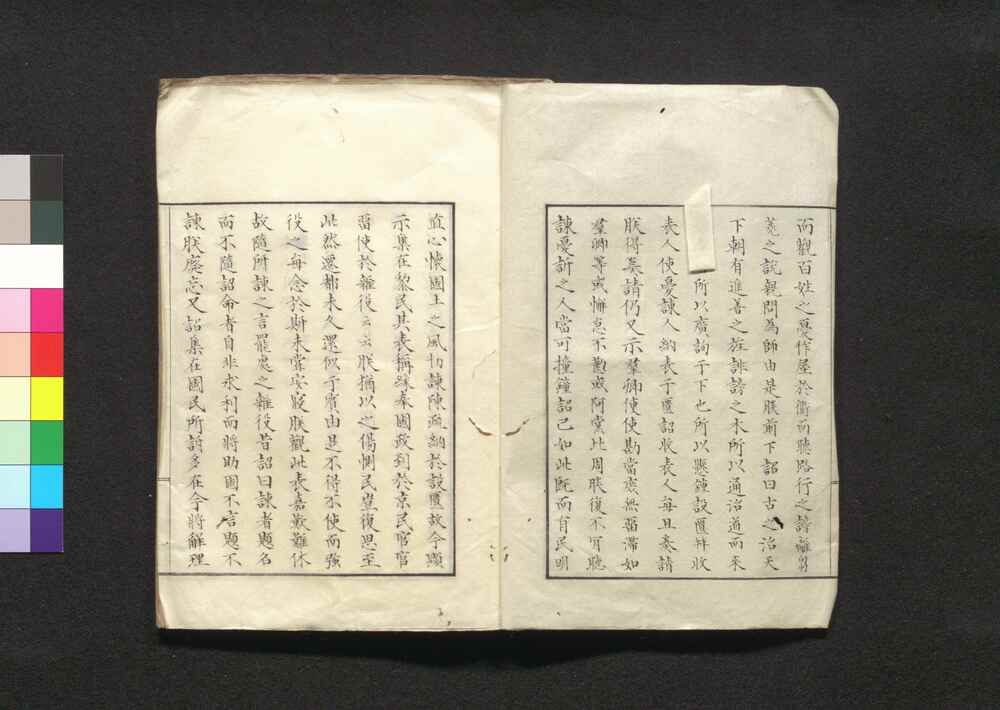 而觀百姓之憂作屋於衢而聽路行之謗雖蒭
蕘之說親問為師由是朕前下詔曰古之治天
下朝有進善之旌誹謗之木所以通治道而來
所以廣詢于下也所以懸鍾設匱拜收
表人使憂諫人納表于匱詔收表人每旦奏請
朕得奏請仍又示羣卿使使勘當庶無留滯如
羣卿等或懈怠不懃或阿黨比周朕復不肯聽
諫憂訴之人當可撞鐘詔已如此既而有民明
直心懷國土之風切諫陳疏納於設匱故今顯
示集在黎民其表稱緣奉國政到於京民官官
留使於雜役云云朕猶以之傷惻民豈復思至
此然遷都未久還似于賓由是不得不使而強
役之每念於斯未嘗安寢朕觀此表嘉歎難休
故隨所諫之言罷處之雜役昔詔曰諫者題名
而不隨詔命者自非求利而將助國不言題不
諫朕癈忘又詔集在國民所訴多在今將解理